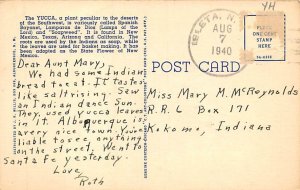 YH
The YUCCA, a plant peculiar to the deserts
of the Southwest, is variously called Spanish
Bayonet, Lamparas de Dios (Lamps of the
Lord) and "Soapweed". It is found in New
Mexico, Texas, Arizona and California. The
roots are used by the Indians as soap, while
the leaves are used for basket making. It has
been adopted as the State Flower of New
Mexico.
ISLETA, N.
AUG
7
1940
PLACE
ONE CENT
STAMP
HERE
POST CARD
Dear Aunt Mary,
We had some Indian
bread to eat. It taste
like saltrising. Saw
an Indian dance Sun-
day. They use a lot
of turquoise and leathers
in it. Albuquerque is a
very nice town. You're
liable to see anything
on the street. Went to
Santa Fe yesterday.
Love,
Ruth
Miss Mary M. McReynolds
R. R. 2 Box 171
Kokomo, Indiana